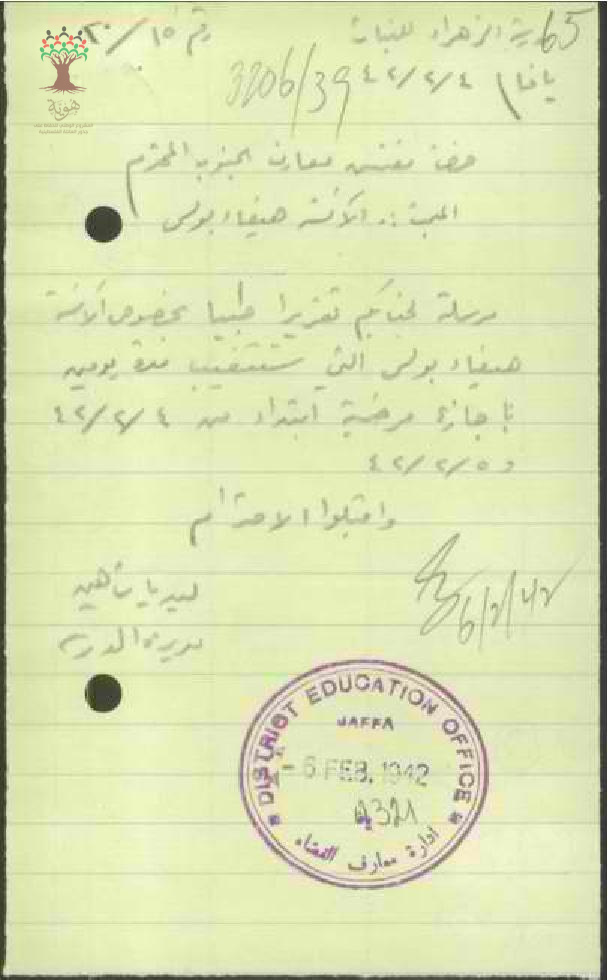 65
مدرسة الزهراء للبنات
رقم ١٥/٣٠
يافا ٤٢/٢/٤
3206/39
هوية
حضرة مفتش معارف الجنوب المحترم
المبحث :. الآنسة هيفاء بولس
مرسلة لجنابكم تقريرا طبيا بخصوص الآنسة
هيفاء بولس التي ستتغيب مدة يومين
باجازة مرضية ابتداء من ٤٢/٢/٤
و ٤٢/٢/٥
واقبلوا الاحترام
ليديا شاهين
مديرة المدرسة
6/2/42
DISTRICT EDUCATION OFFICE
JAFFA
- 6 FEB. 1942
ادارة معارف القضاء